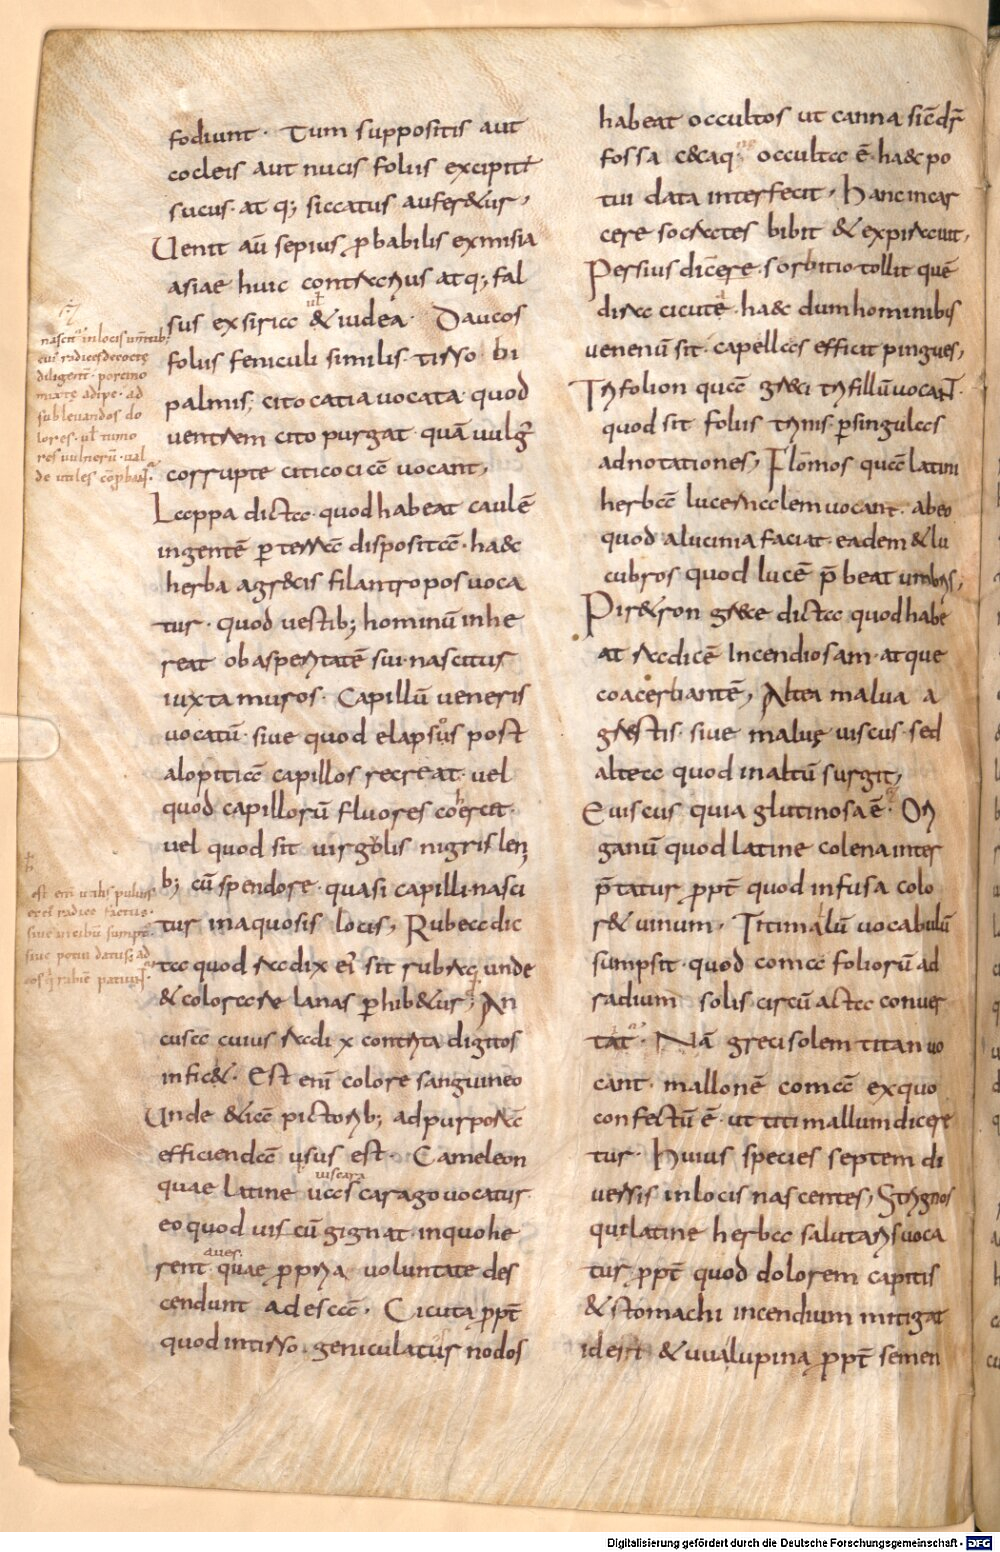 fodiunt · Tum suppositis aut
cocleis aut nucis foliis excipit̄
sucus · at q; siccatus aufer&ur ,
Uenit aū sepius ꝓbabilis ex misia
asiae huic contrarius at q; fal
sus ex sirica & iudea · Daucos
foliis feniculi similis · tirso · bi
palmis; cito catia uocata quod
uentrem cito purgat · quā uulḡ
corrupte citicocicā uocant ,
Lappa dicta · quod habeat caulē
ingentē ꝑ terrā dispositā · haec
herba a gr&cis filantropos uoca
tur · quod uestib; hominū inhe
reat ob asperitatē sui · nascitur
iuxta muros · Capillū ueneris
uocatū · siue quod elapsus post
alopiticā capillos recreat · uel
quod capillorū fluores cohercit ·
uel quod sit uirgolis nigris leni
b; cū spendore · quasi capilli · nasci
tur in aquosis locis , Rubea dic
ta quod radix ei' sit rubra; unde
& colorare lanas ꝑhib&ur ; An
cusa cuius radix contrita digitos
infic& · Est eni colore sanguineo
Unde & ica pictorib; ad purporā
efficiendā usus est · Cameleon
quae latine uas carago uocatur
uiscara
eo quod uiscū gignat · in quo he
rent quae ꝓpria uoluntate des
aues
cendunt ad escā · Cicuta ꝓpt̄
quod in tirso · geniculatus nodos
habeat occultos ut canna sic̄ dr̄
fossa occulta ē · haec po
tui data interfecit , Hanc in car
cere socrates bibit & expirauit ,
Persius dicere · sorbitio tollit quē
dira cicutę · haec dum hominibus
uenenū sit · capellas efficit pingues ,
Trifolion quā greci trifillū uocant ·
quod sit foliis trinis · ꝑ singulas
adnotationes , Flomos quā latini
herbā lucernalem uocant · ab eo
quod a lucinia faciat · eadem & lu
cubros quod lucē p̄beat umbris ,
Pir&ron grece dicta quod habe
at radicē Incendiosam · at que
coacerbantē , Altea malua a
grestis · siue maluę uiscus · sed
altea quod in altū surgit ,
Euiscus quia glutinosa ē · Ori
ganū quod latine colena inter
p̄tatur ꝓpt̄ quod infusa colo
r& uinum · Titimalū uocabulū
sumpsit · quod comā foliorū ad
radium solis circū acta conuer
tat · Nā greci solem titan uo
cant · mallonē comā ex quo
confectū ē · ut titimallum dicere
tur · Huius species septem di
uersis in locis nascentes , Strignos
qui latine herba salutaris uoca
tur ꝓpt̄ quod dolorem capitis
& stomachi incendium mitigat
idem & uua lupina ꝓpt̄ semen
est eni
siue
Digitalisierung gefördert durch die Deutsche Forschungsgemeinschaft - DFG